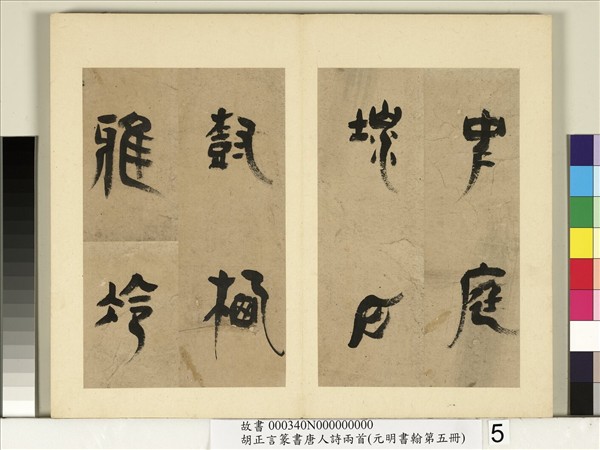 中庭
地白
樹棲
雅冷
故書 000340N000000000
胡正言篆書唐人詩兩首(元明書翰第五冊)
5